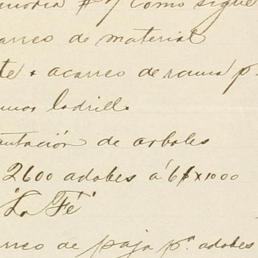 # 7 como sigue
acarreo de material
te + acarreo de rama p.
ladrillo
ntación de arboles
2600 adobes á 6 x 1000
"La Fé"
rreo de paja pª adobes